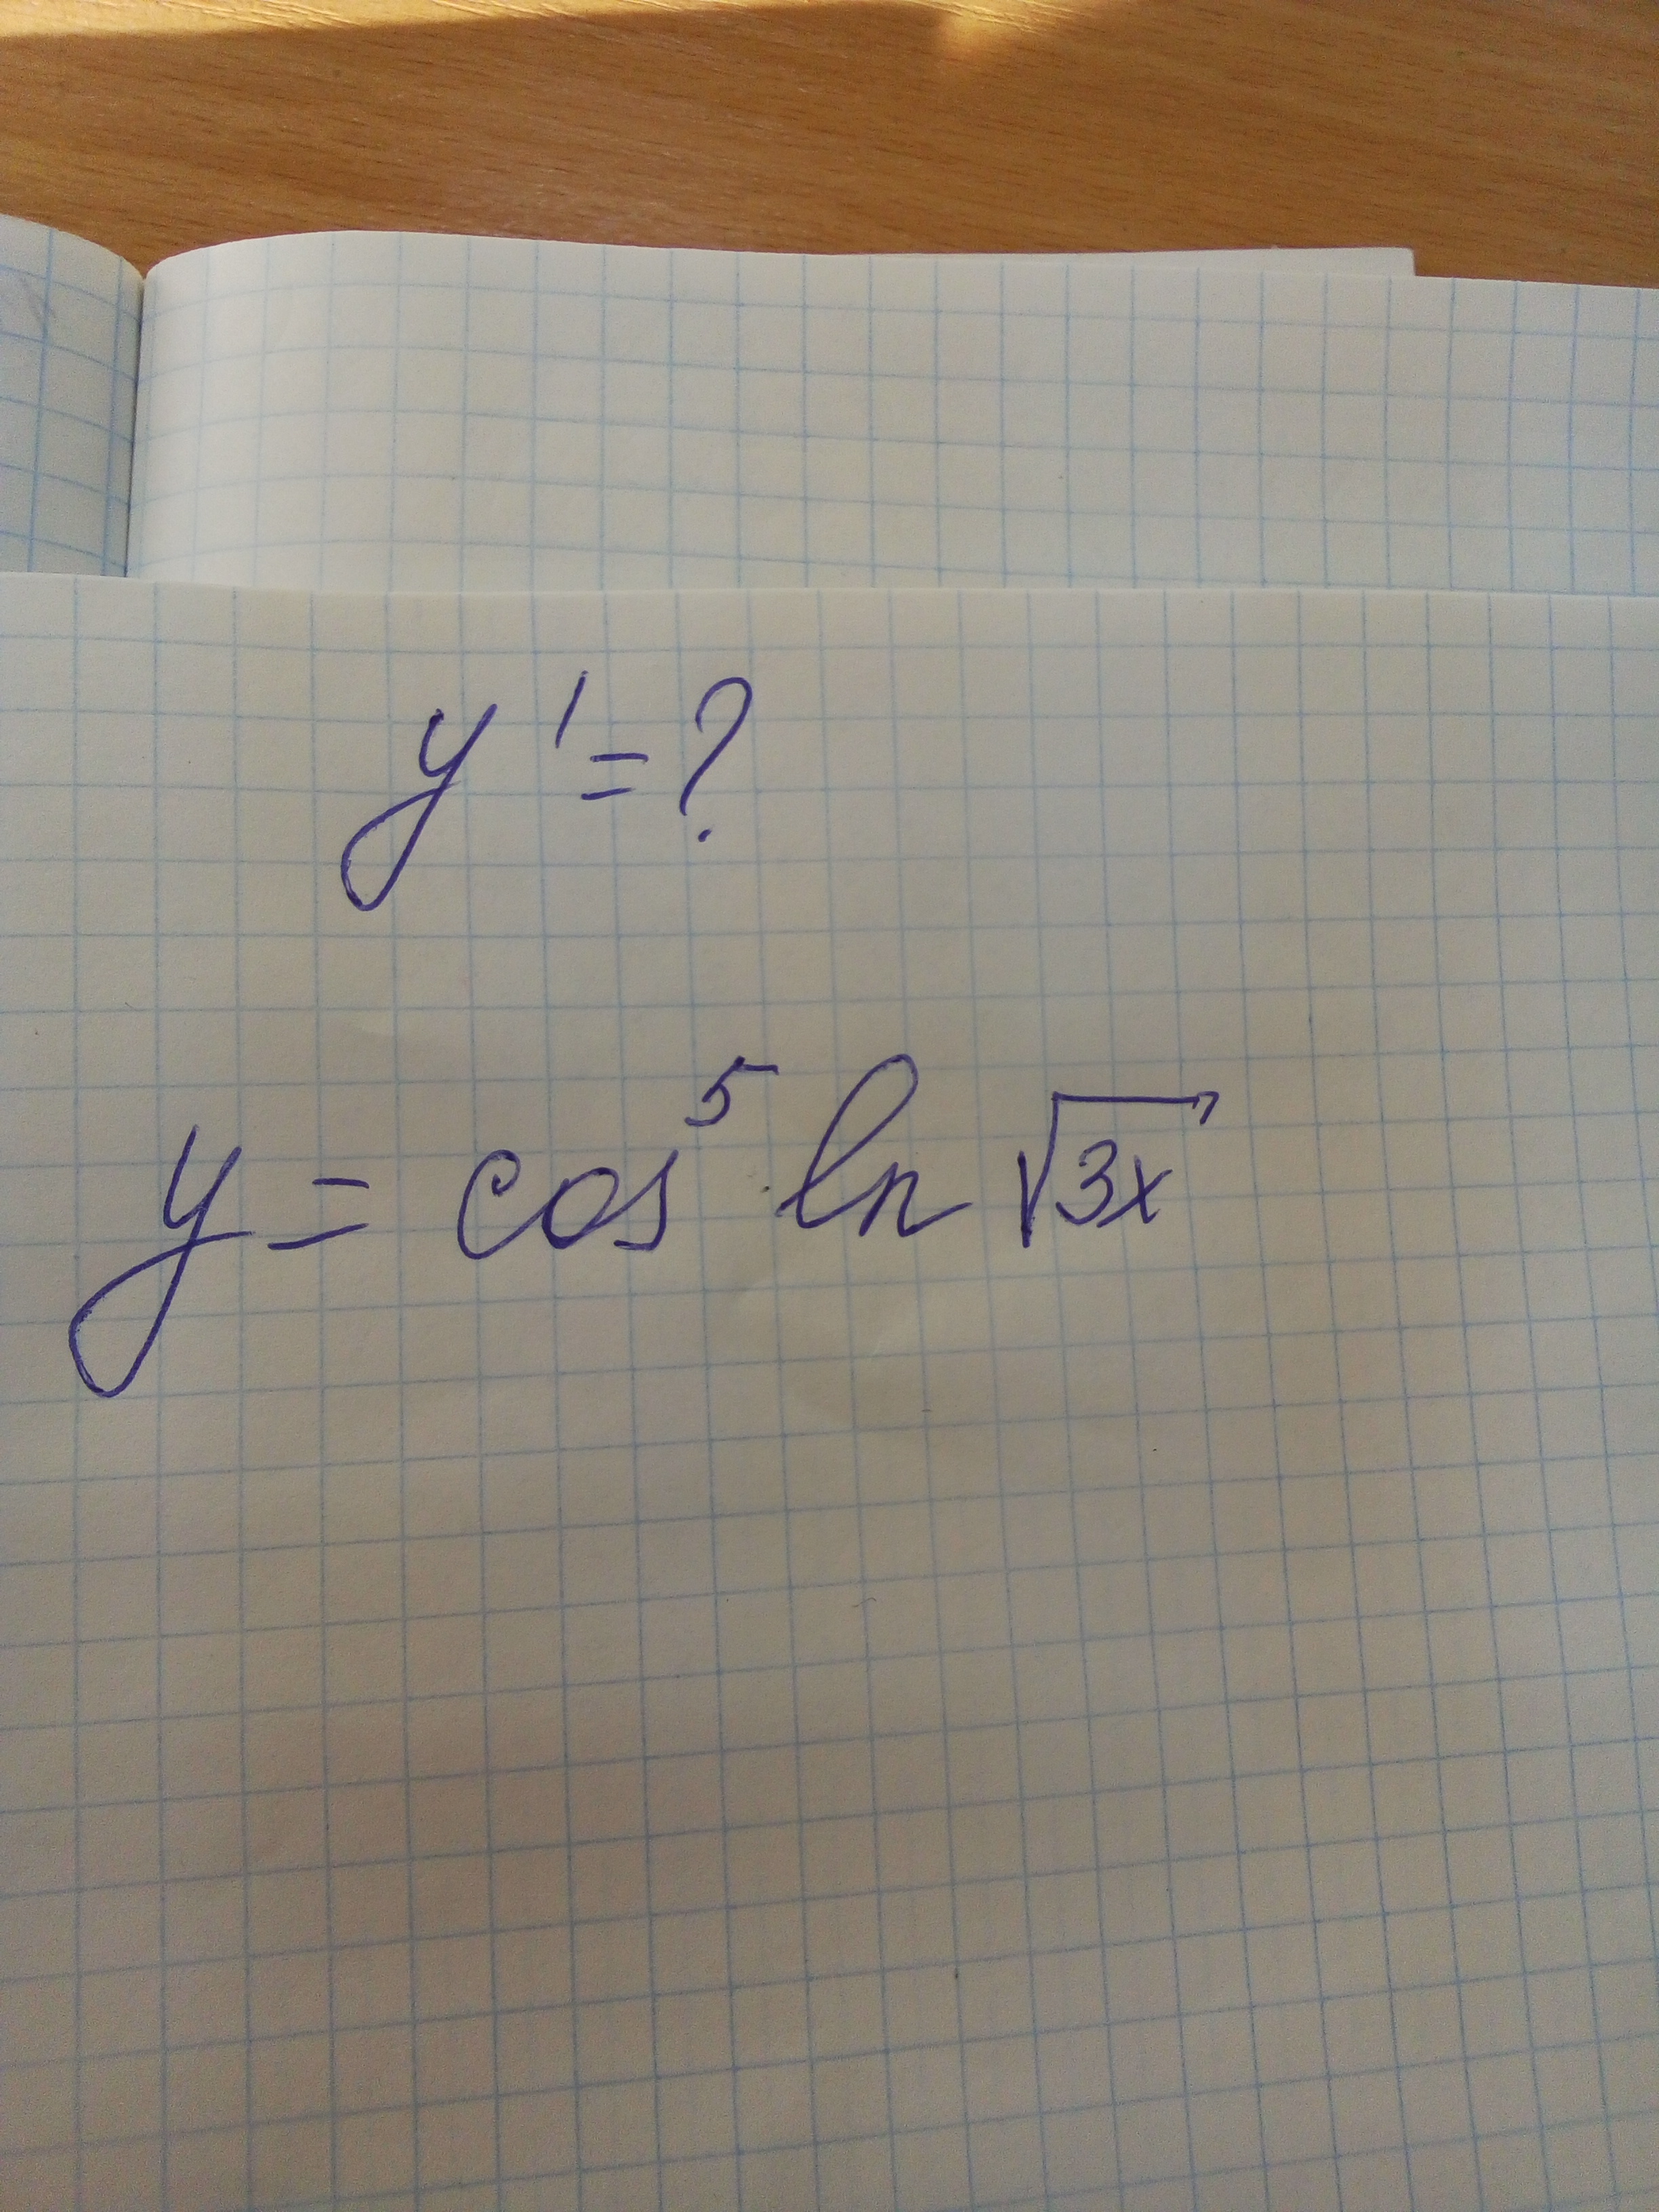 y' = ?
y = cos⁵ ln √3x